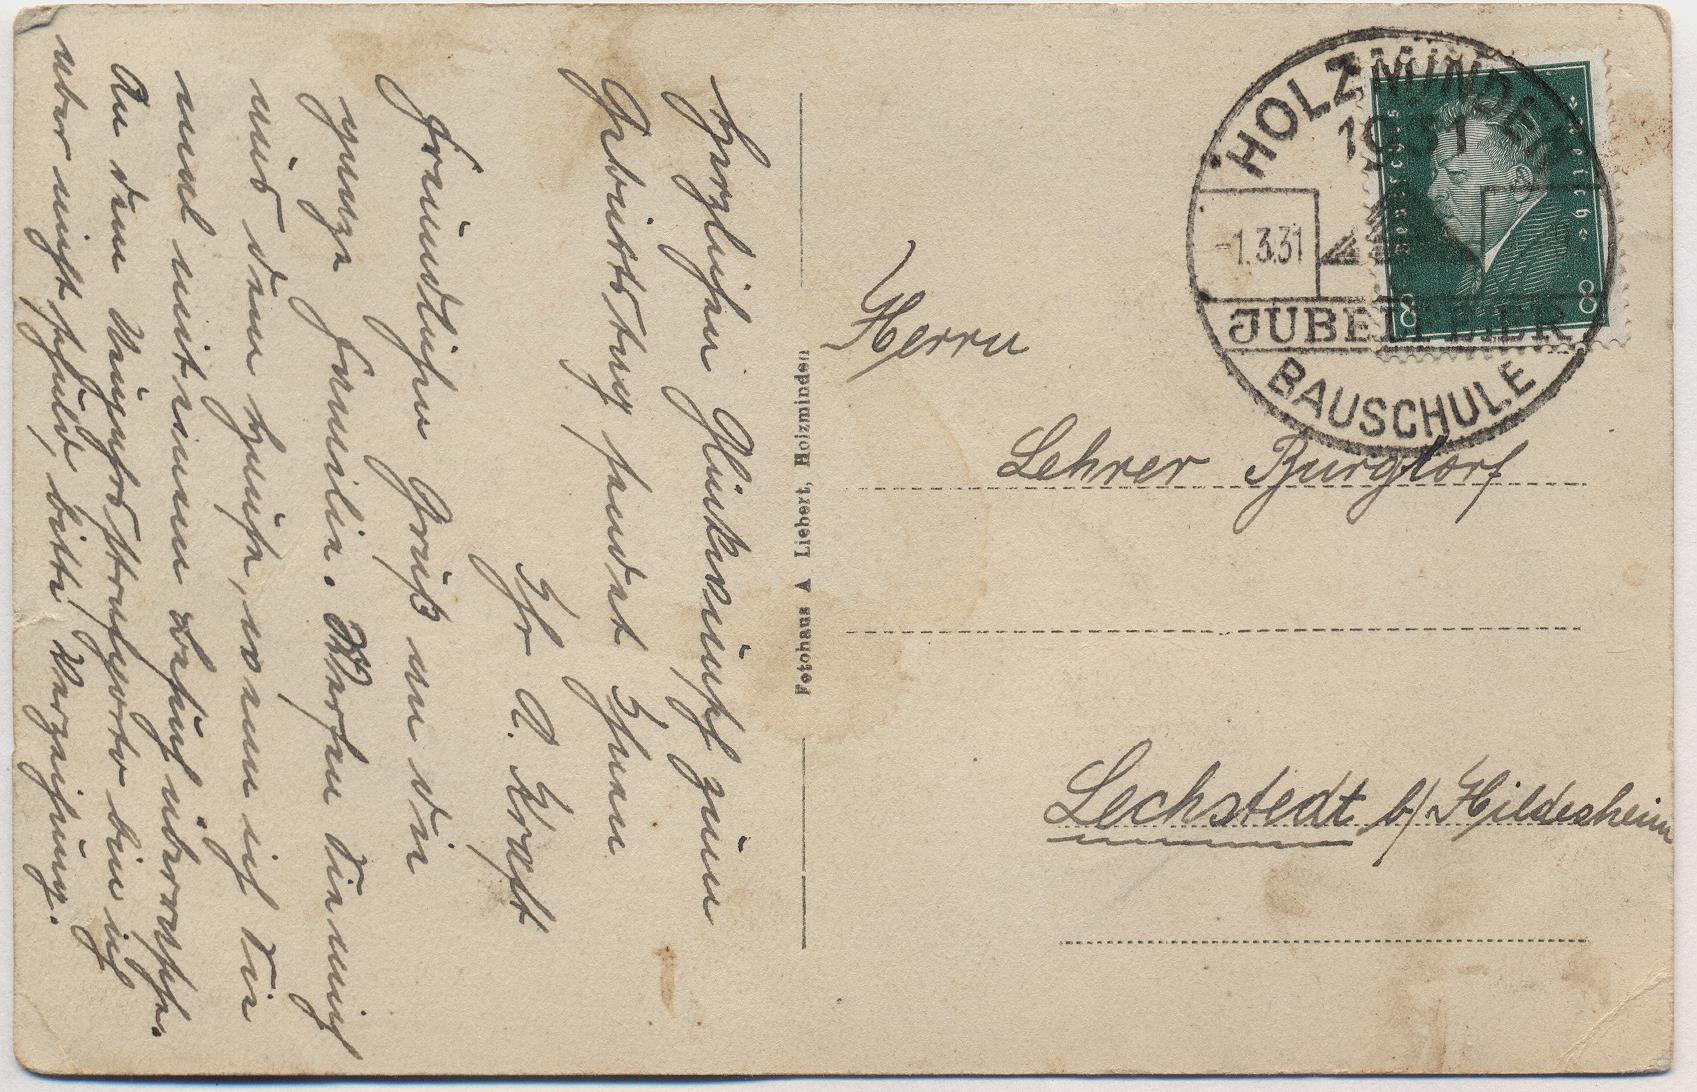 Herzlichen Glückwunsch zum
Geburtstag sendet Ihnen
Ihr A. Kraft
Freundlichen Gruß an die
ganze Familie. Werfen Sie mich
aus dem Hause, wenn ich Sie
mal mit einem Besuch überrasche.
An dem Neujahrsstrafporto bin ich
aber nicht schuld, bitte Verzeihung.
Fotohaus A Liebert, Holzminden
HOLZMINDEN
1931
-1.3.31
JUBELFEIER
BAUSCHULE
Deutsches Reich
8 8
Herrn
Lehrer Burgdorf
Lechstedt b/Hildesheim